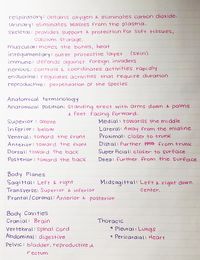 respiratory: obtains oxygen & eliminates carbon dioxide.
urinary: eliminates wastes from the plasma.
skeletal: provides support & protection for safe tissues,
calcium storage.
muscular: moves the bones, heart
integumentary: outer protective layer (skin)
immune: defends against foreign invaders
nervous: controls & coordinates activities rapidly
endocrine: regulates activities that require duration
reproductive: perpetuation of the species
Anatomical terminology
Anatomical Position: standing erect with arms down & palms
& feet facing forward.
Superior: above
Inferior: below
Ventral: toward the front
Anterior: toward the front
Dorsal: toward the back
Posterior: toward the back
Medial: towards the middle
Lateral: Away from the midline
Proximal: closer to trunk
Distal: further from trunk
Superficial: closer to surface
Deep: further from the surface
Body Planes
Sagittal: Left & right
Transverse: Superior & inferior
Frontal/Coronal: Anterior & posterior
Midsagittal: Left & right down
center.
Body Cavities
Cranial: Brain
Vertebral: spinal cord
Abdominal: digestive
Pelvic: bladder, reproductive &
rectum
Thoracic
* Pleural: Lungs
* Pericardial: Heart